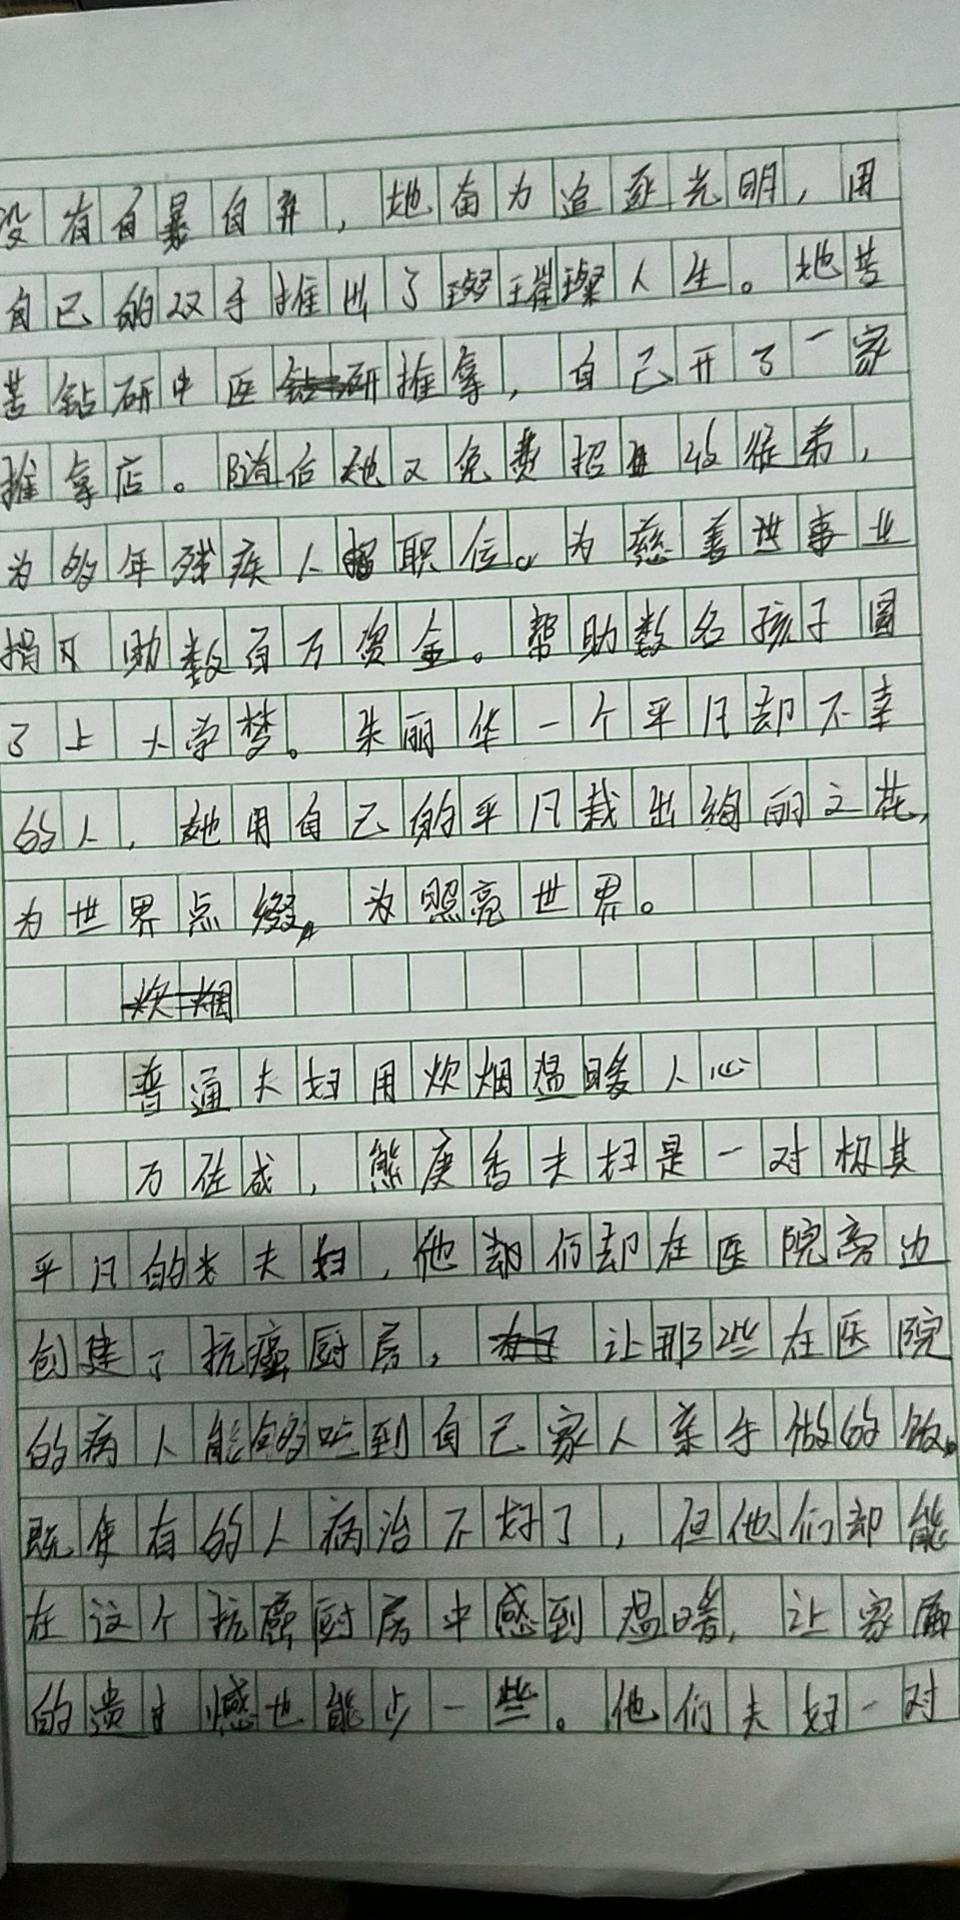 没有自暴自弃，她奋力追逐光明，用
自己的双手推出了璀璨人生。她苦
苦钻研中医推拿，自己开了一家
推拿店。随后她又免费招收徒弟，
为的年残疾人职位。为慈善事业
捐助数百万资金。帮助数名孩子圆
了上大学梦。朱丽华一个平凡却不幸
的人，她用自己的平凡栽出绚丽之花，
为世界点缀，为照亮世界。
炊烟
普通夫妇用炊烟温暖人心
万佐成，熊庚香夫妇是一对极其
平凡的老夫妇，他们却在医院旁边
创建了抗癌厨房，让那些在医院
的病人能够吃到自己家人亲手做的饭。
既使有的人病治不好了，但他们却能
在这个抗癌厨房中感到温暖，让家属
的遗憾也能少一些。他们夫妇一对